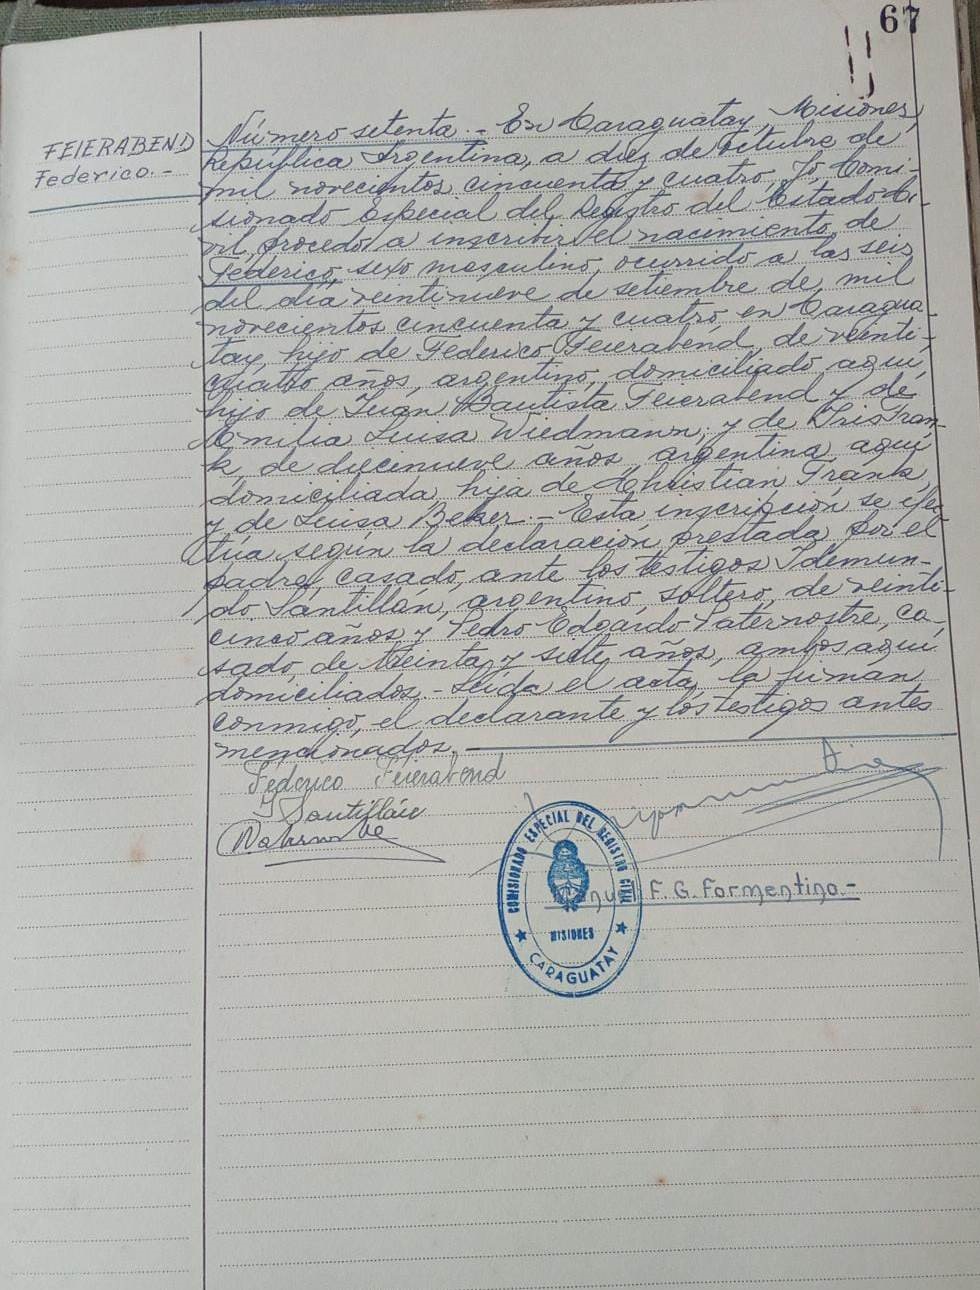 67
FEIERABEND
Federico.-
Número setenta.- En Caraguatay, Misiones,
República Argentina, a diez de octubre de
mil novecientos cincuenta y cuatro, Yo, Comi-
sionado Especial del Registro del Estado Ci-
vil procedo a inscribir el nacimiento de
Federico, sexo masculino, ocurrido a las seis
del día veintinueve de setiembre de mil
novecientos cincuenta y cuatro, en Caragua-
tay, hijo de Federico Feierabend, de veinti-
cuatro años, argentino, domiciliado aquí,
hijo de Juan Bautista Feierabend y de
Emilia Luisa Wiedmann; y de Iris Fran-
k, de diecinueve años, argentina, aquí
domiciliada, hija de Christian Frank,
y de Luisa Beker.- Esta inscripción se efec-
túa según la declaración prestada por el
padre, casado, ante los testigos Idemun-
do Santillán, argentino, soltero, de veinti-
cinco años y Pedro Edgardo Paternostre, ca-
sado, de treinta y siete años, ambos aquí
domiciliados.- Leída el acta, la firman
conmigo, el declarante y los testigos antes
mencionados.
Federico Feierabend
Santillán
COMISIONADO ESPECIAL DEL REGISTRO CIVIL
F. G. Formentino.-
MISIONES
CARAGUATAY